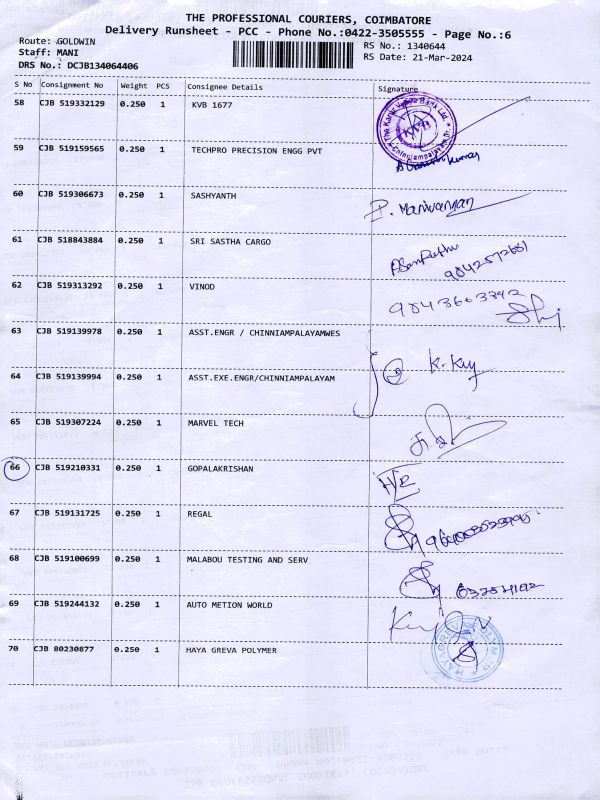 THE PROFESSIONAL COURIERS, COIMBATORE
Delivery Runsheet - PCC - Phone No.:0422-3505555 - Page No.:6
Route: GOLDWIN
Staff: MANI
DRS No.: DCJB134064406
RS No.: 1340644
RS Date: 21-Mar-2024
S No Consignment No Weight PCS Consignee Details Signature
58 CJB 519332129 0.250 1 KVB 1677
The Karur Vysya Bank Ltd. Chinniampalayam Br. KVB
59 CJB 519159565 0.250 1 TECHPRO PRECISION ENGG PVT
60 CJB 519306673 0.250 1 SASHYANTH P. Manivannan
61 CJB 518843884 0.250 1 SRI SASTHA CARGO
62 CJB 519313292 0.250 1 VINOD
63 CJB 519139978 0.250 1 ASST.ENGR / CHINNIAMPALAYAMWES
64 CJB 519139994 0.250 1 ASST.EXE.ENGR/CHINNIAMPALAYAM
65 CJB 519307224 0.250 1 MARVEL TECH
66 CJB 519210331 0.250 1 GOPALAKRISHAN
67 CJB 519131725 0.250 1 REGAL
68 CJB 519100699 0.250 1 MALABOU TESTING AND SERV
69 CJB 519244132 0.250 1 AUTO METION WORLD
70 CJB 80230877 0.250 1 HAYA GREVA POLYMER